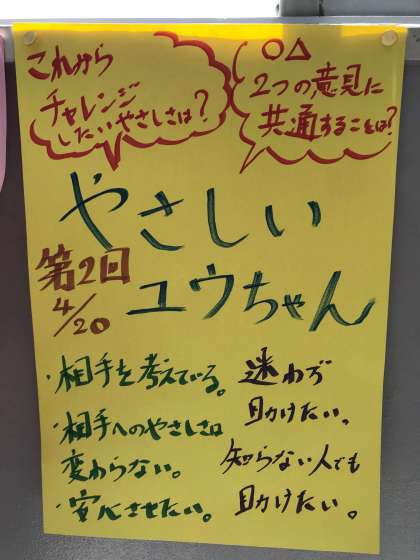 これから
チャレンジ
したいやさしさは?
○△
2つの意見に
共通することは?
やさしい
ユウちゃん
第2回
4/20
・相手を考えている。
・相手へのやさしさは
変わらない。
・安心させたい。
迷わず
助けたい、
知らない人でも
助けたい。